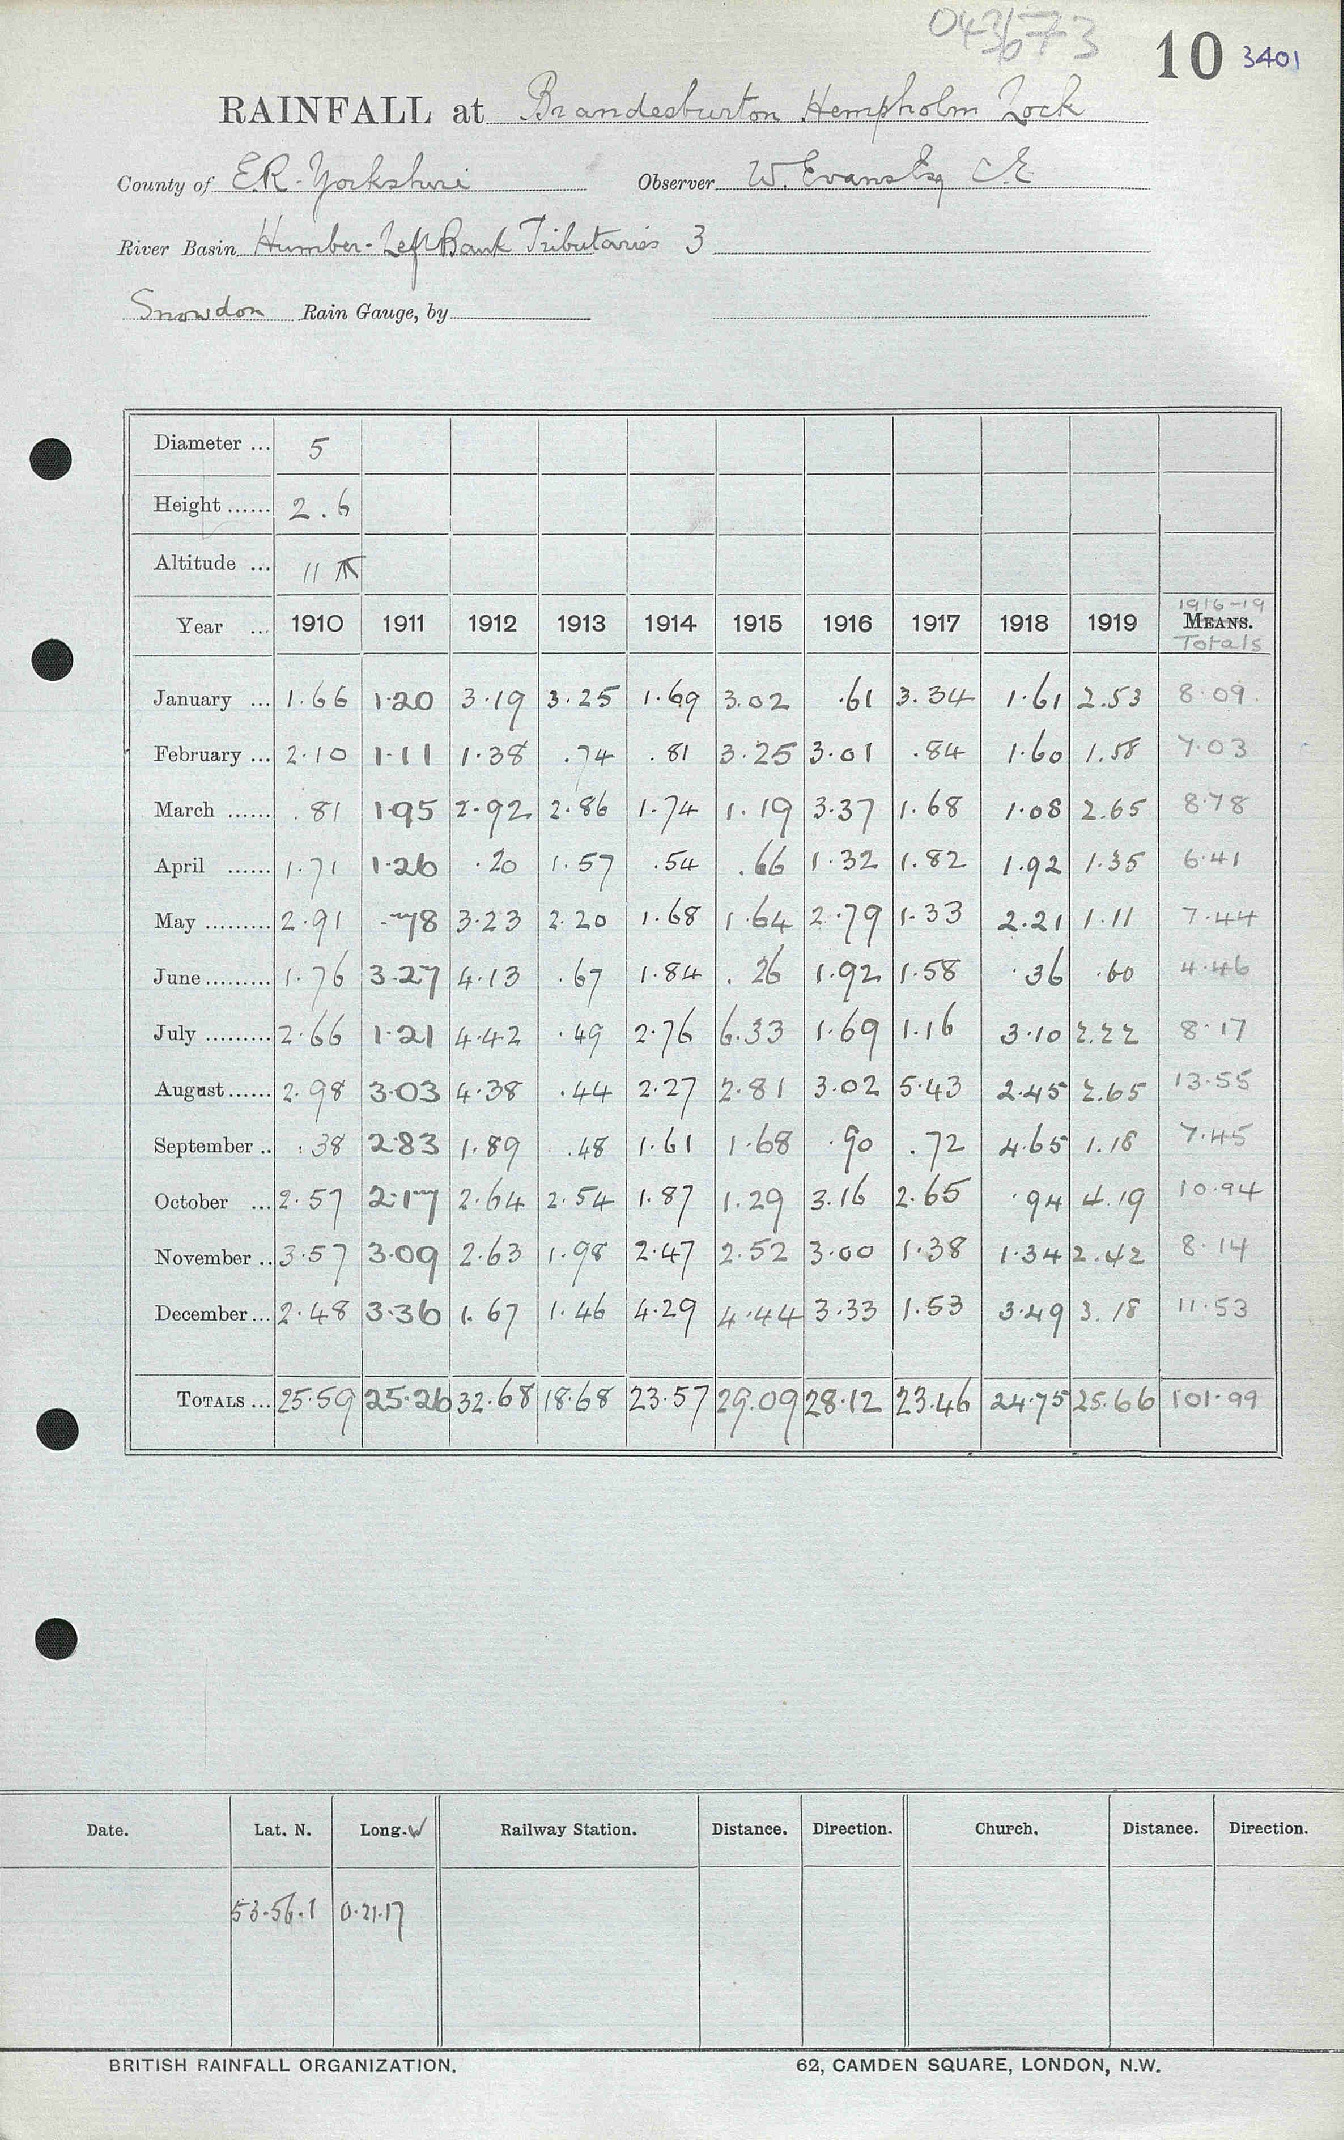 10 3401
RAINFALL at Brandesburton Hempholm Lock
County of E.R. Yorkshire Observer W. Evans Esq C.E.
River Basin Humber-Left Bank Tributaries 3
Snowdon Rain Gauge, by
Diameter ... 5
Height ...... 2.6
Altitude ... 11
1916-19
Year ... 1910 1911 1912 1913 1914 1915 1916 1917 1918 1919 MEANS.
Totals
January ... 1.66 1.20 3.19 3.25 1.69 3.02 .61 3.34 1.61 2.53 8.09
February ... 2.10 1.11 1.38 .74 .81 3.25 3.01 .84 1.60 1.58 7.03
March ...... .81 1.95 2.92 2.86 1.74 1.19 3.37 1.68 1.08 2.65 8.78
April ...... 1.71 1.26 .20 1.57 .54 .66 1.32 1.82 1.92 1.35 6.41
May ......... 2.91 .78 3.23 2.20 1.68 1.64 2.79 1.33 2.21 1.11 7.44
June ......... 1.76 3.27 4.13 .67 1.84 .26 1.92 1.58 .36 .60 4.46
July ......... 2.66 1.21 4.42 .49 2.76 6.33 1.69 1.16 3.10 2.22 8.17
August ...... 2.98 3.03 4.38 .44 2.27 2.81 3.02 5.43 2.45 2.65 13.55
September .. .38 2.83 1.89 .48 1.61 1.68 .90 .72 4.65 1.18 7.45
October ... 2.57 2.17 2.64 2.54 1.87 1.29 3.16 2.65 .94 4.19 10.94
November .. 3.57 3.09 2.63 1.98 2.47 2.52 3.00 1.38 1.34 2.42 8.14
December ... 2.48 3.36 1.67 1.46 4.29 4.44 3.33 1.53 3.49 3.18 11.53
TOTALS ... 25.59 25.26 32.68 18.68 23.57 29.09 28.12 23.46 24.75 25.66 101.99
Date. Lat. N. Long. W Railway Station. Distance. Direction. Church. Distance. Direction.
53.56.1 0.21.17
BRITISH RAINFALL ORGANIZATION. 62, CAMDEN SQUARE, LONDON, N.W.